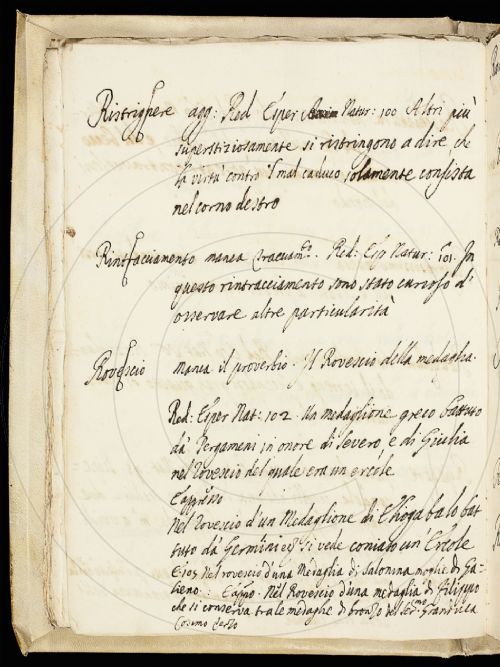 Ristrignere agg: Red Esper Natur: 100 Altri più
superstiziosamente si ristringono a dire che
la virtù contro 'l mal caduco solamente consista
nel corno destro
manca Red: Esp Natur: 101. In
questo rintracciamento sono stato curioso d'
osservare altre particularità
Rovescio manca il proverbio. Il Rovescio della medaglia.
Red: Esper Nat: 102. Un medaglione greco battuto
da' Pergameni in onore di Severo e di Giulia
nel rovescio del quale era un ercole
E appresso
Nel rovescio d'un Medaglione di Eliogabalo bat
tuto da' si vede coniato un Ercole
E 103 Nel rovescio d'una Medaglia di Salonina moglie di Ga
lieno: E appo. Nel Rovescio d'una medaglia di Filippo
che si conserva tra le medaglie di bronzo del Ser.mo Granduca
Cosimo terzo